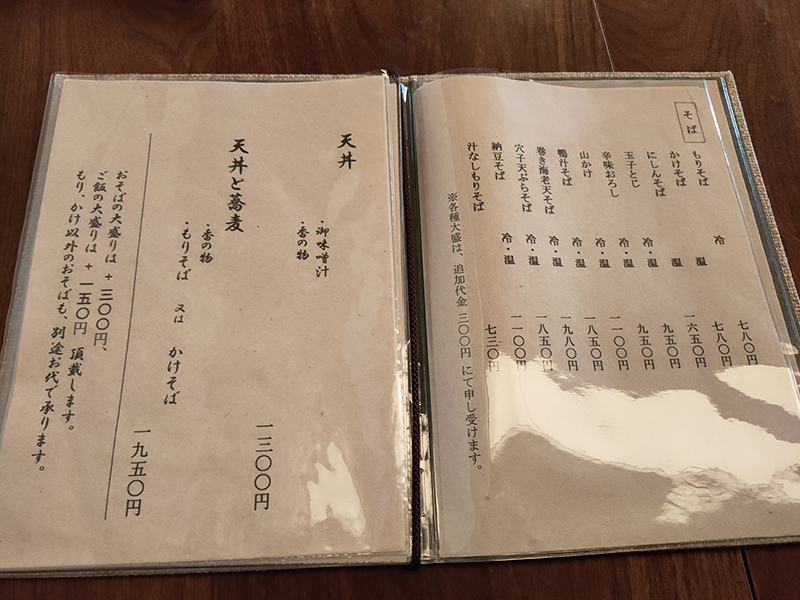 そば
もりそば 冷 七八〇円
かけそば 温 七八〇円
にしんそば 温 一六五〇円
玉子とじ 冷・温 九五〇円
辛味おろし 冷・温 九五〇円
山かけ 冷・温 一一〇〇円
鴨汁そば 冷・温 一八五〇円
巻き海老天そば 冷・温 一九八〇円
穴子天ぷらそば 冷・温 一八五〇円
納豆そば 冷・温 一一〇〇円
汁なしもりそば 七三〇円
※各種大盛は、追加代金 三〇〇円 にて申し受けます。
天丼
・御味噌汁
・香の物
一三〇〇円
天丼と蕎麦
・香の物
・もりそば 又は かけそば
一九五〇円
おそばの大盛りは + 三〇〇円、
ご飯の大盛りは + 一五〇円 頂載します。
もり、かけ以外のおそばも、別途お代で承ります。